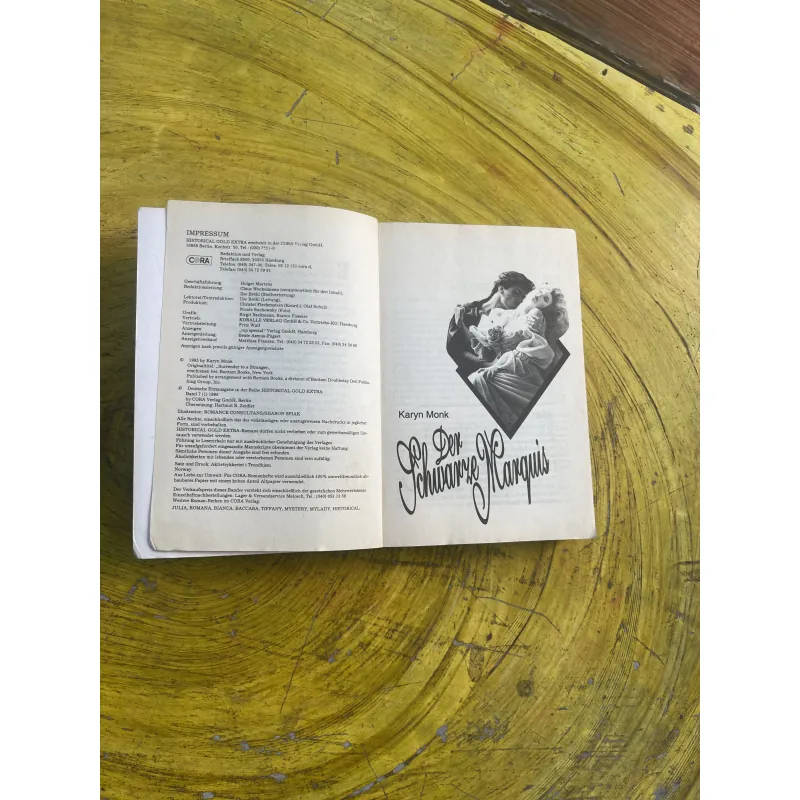 IMPRESSUM
HISTORICAL GOLD EXTRA erscheint in der CORA Verlag GmbH,
Berlin,
CORA
Redaktion und Verlag
Geschäftsführung: Holger Martens
Redaktionsleitung: Claus Weckelmann (verantwortlich für den Inhalt),
Ilse Bröhl (Stellvertretung)
Lektorat/Textredaktion: Ilse Bröhl (Leitung),
Produktion: Christel Fleckenstein
Grafik:
Vertrieb: KORALLE VERLAG GmbH & Co. Vertriebs-KG, Hamburg
Vertriebsleitung: Fritz Wulf
Anzeigen: „top special" Verlag GmbH, Hamburg
Anzeigenleitung: Beate
Anzeigenverkauf:
Anzeigen nach jeweils gültiger Anzeigenpreisliste
© by Karyn Monk
Originaltitel: „Surrender to a Stranger",
erschienen bei: Bantam Books, New York
Published by arrangement with Bantam Books, a division of Bantam Doubleday Dell Publishing Group, Inc.
Deutsche Erstausgabe in der Reihe HISTORICAL GOLD EXTRA
Band 7 (1)
by CORA Verlag GmbH, Berlin
Übersetzung: Hartmut R. Zeidler
Illustration: ROMANCE CONSULTANS/SHARON SPIAK
Alle Rechte, einschließlich das der vollständigen oder auszugsweisen Nachdrucks in jeglicher
Form, sind vorbehalten.
HISTORICAL GOLD EXTRA-Romane dürfen nicht verliehen oder zum gewerbsmäßigen Um-
tausch verwendet werden.
Führung in Lesezirkeln nur mit ausdrücklicher Genehmigung des Verlages
Für unaufgefordert eingesandte Manuskripte übernimmt der Verlag keine Haftung
Sämtliche Personen dieser Ausgabe sind frei erfunden.
Ähnlichkeiten mit lebenden oder verstorbenen Personen sind rein zufällig.
Satz und Druck:
Norway
Aus Liebe zur Umwelt: Für CORA-Romanhefte wird ausschließlich 100% umweltfreundlich ab-
baubares Papier mit einem hohen Anteil Altpapier verwendet.
Der Verkaufspreis dieses Bandes versteht sich einschließlich der gesetzlichen Mehrwertsteuer.
Einzelheftnachbestellungen: Lager- & Versandservice
Weitere Roman-Reihen im CORA Verlag:
JULIA, ROMANA, BIANCA, BACCARA, TIFFANY, MYSTERY, MYLADY, HISTORICAL.
Karyn Monk
Der
Schwarze Marquis